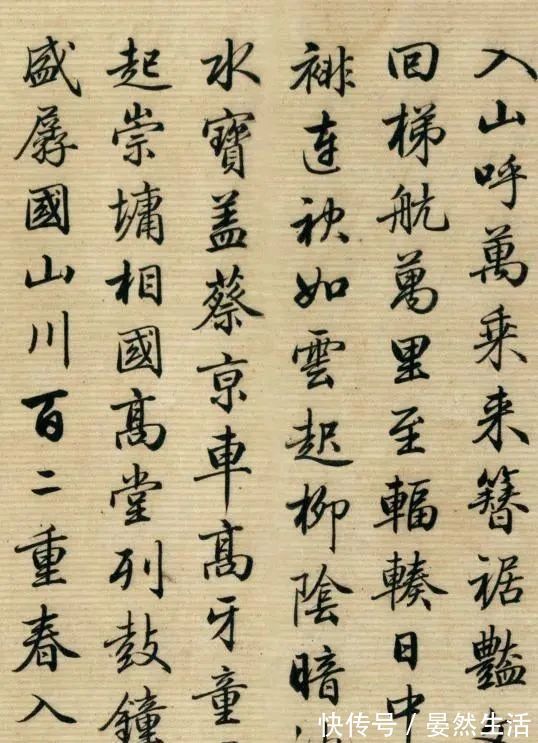 入山呼萬乘来簪裾豔
回梯航萬里至輻輳日中
褂連袂如雲起柳陰暗
水寶蓋蔡京車高牙童
起崇墉相國高堂列鼓鐘
盛孱國山川百二重春入
快传号/晏然生活